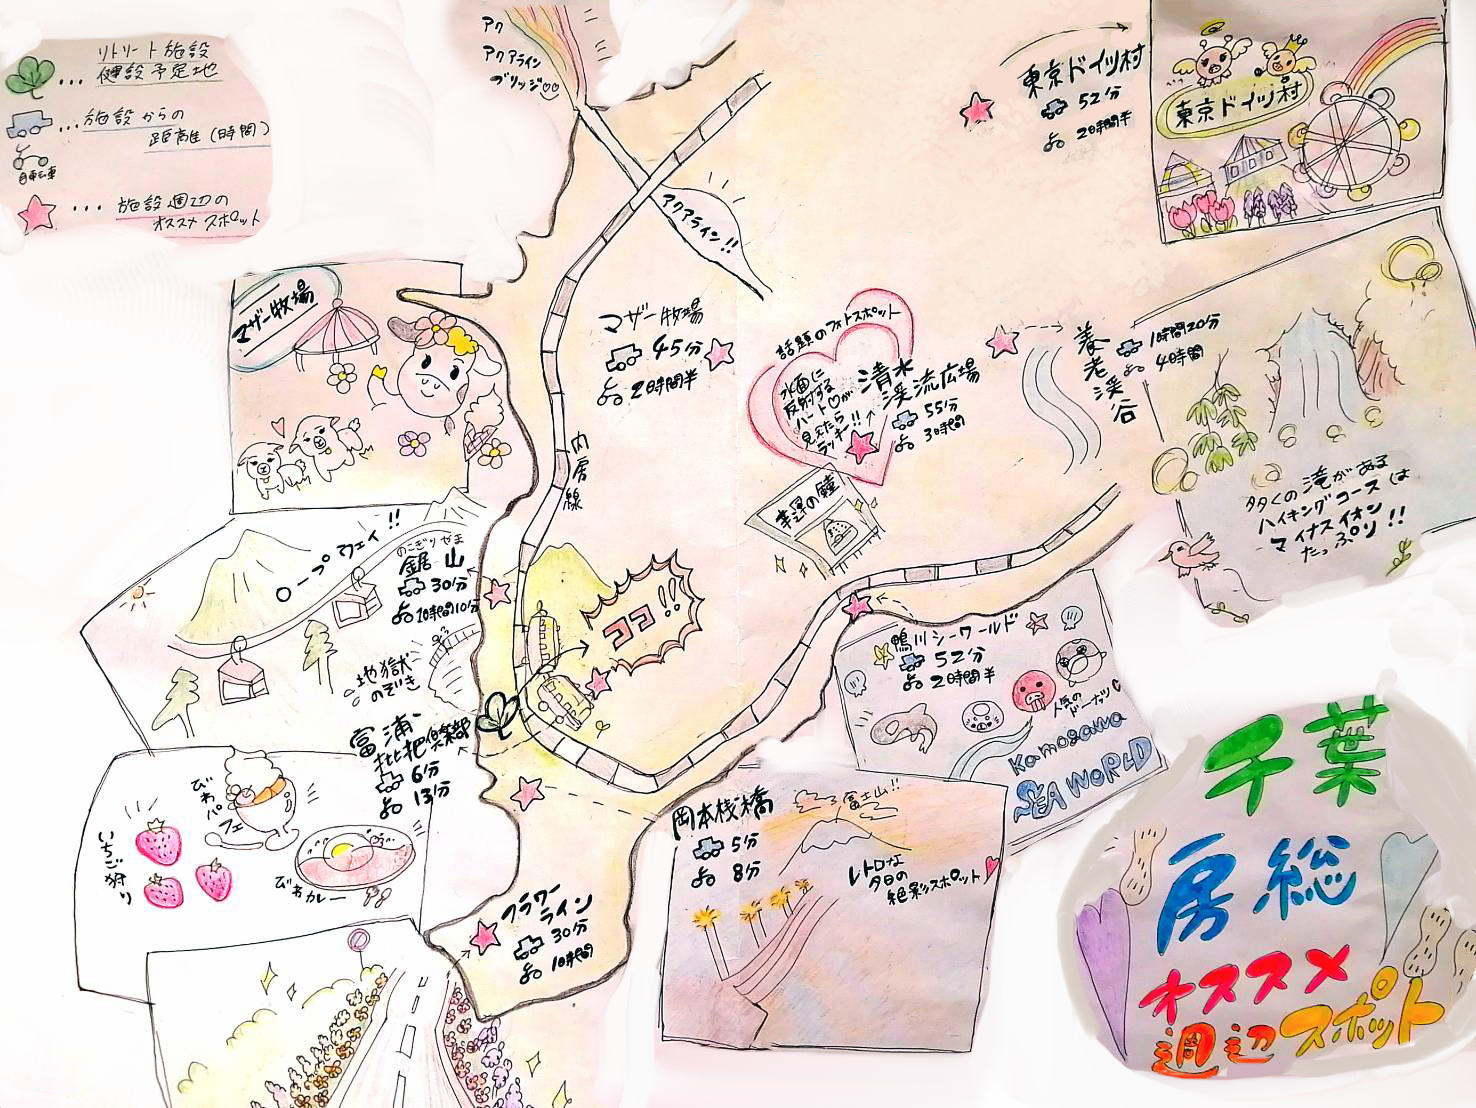 リトリート施設
健設予定地
施設からの
距離(時間)
自転車
施設週辺の
オススメスポット
アク
アクアライン
ブリッジ
アクアライン!!
東京ドイツ村
52分
2時間半
東京ドイツ村
マザー牧場
マザー牧場
45分
2時間半
話題のフォトスポット
水面に
反射する
ハート♡が
見えたら
ラッキー!!
清水
渓流広場
55分
3時間
養老渓谷
1時間20分
4時間
多くの滝がある
ハイキングコースは
マイナスイオン
たっぷり!!
内房線
幸運の鐘
ロープウェイ!!
のこぎりやま
鋸山
30分
1時間10分
地獄
のぞき
ココ!!
富浦
枇杷倶楽部
6分
13分
びわパフェ
いちご狩り
びわカレー
鴨川シーワールド
52分
2時間半
人気の
ドーナッツ
Kamogawa
SEA WORLD
岡本桟橋
5分
8分
富士山!!
レトロな
夕日の
絶景スポット
フラワー
ライン
30分
1時間
千葉
房総
オススメ
週辺スポット